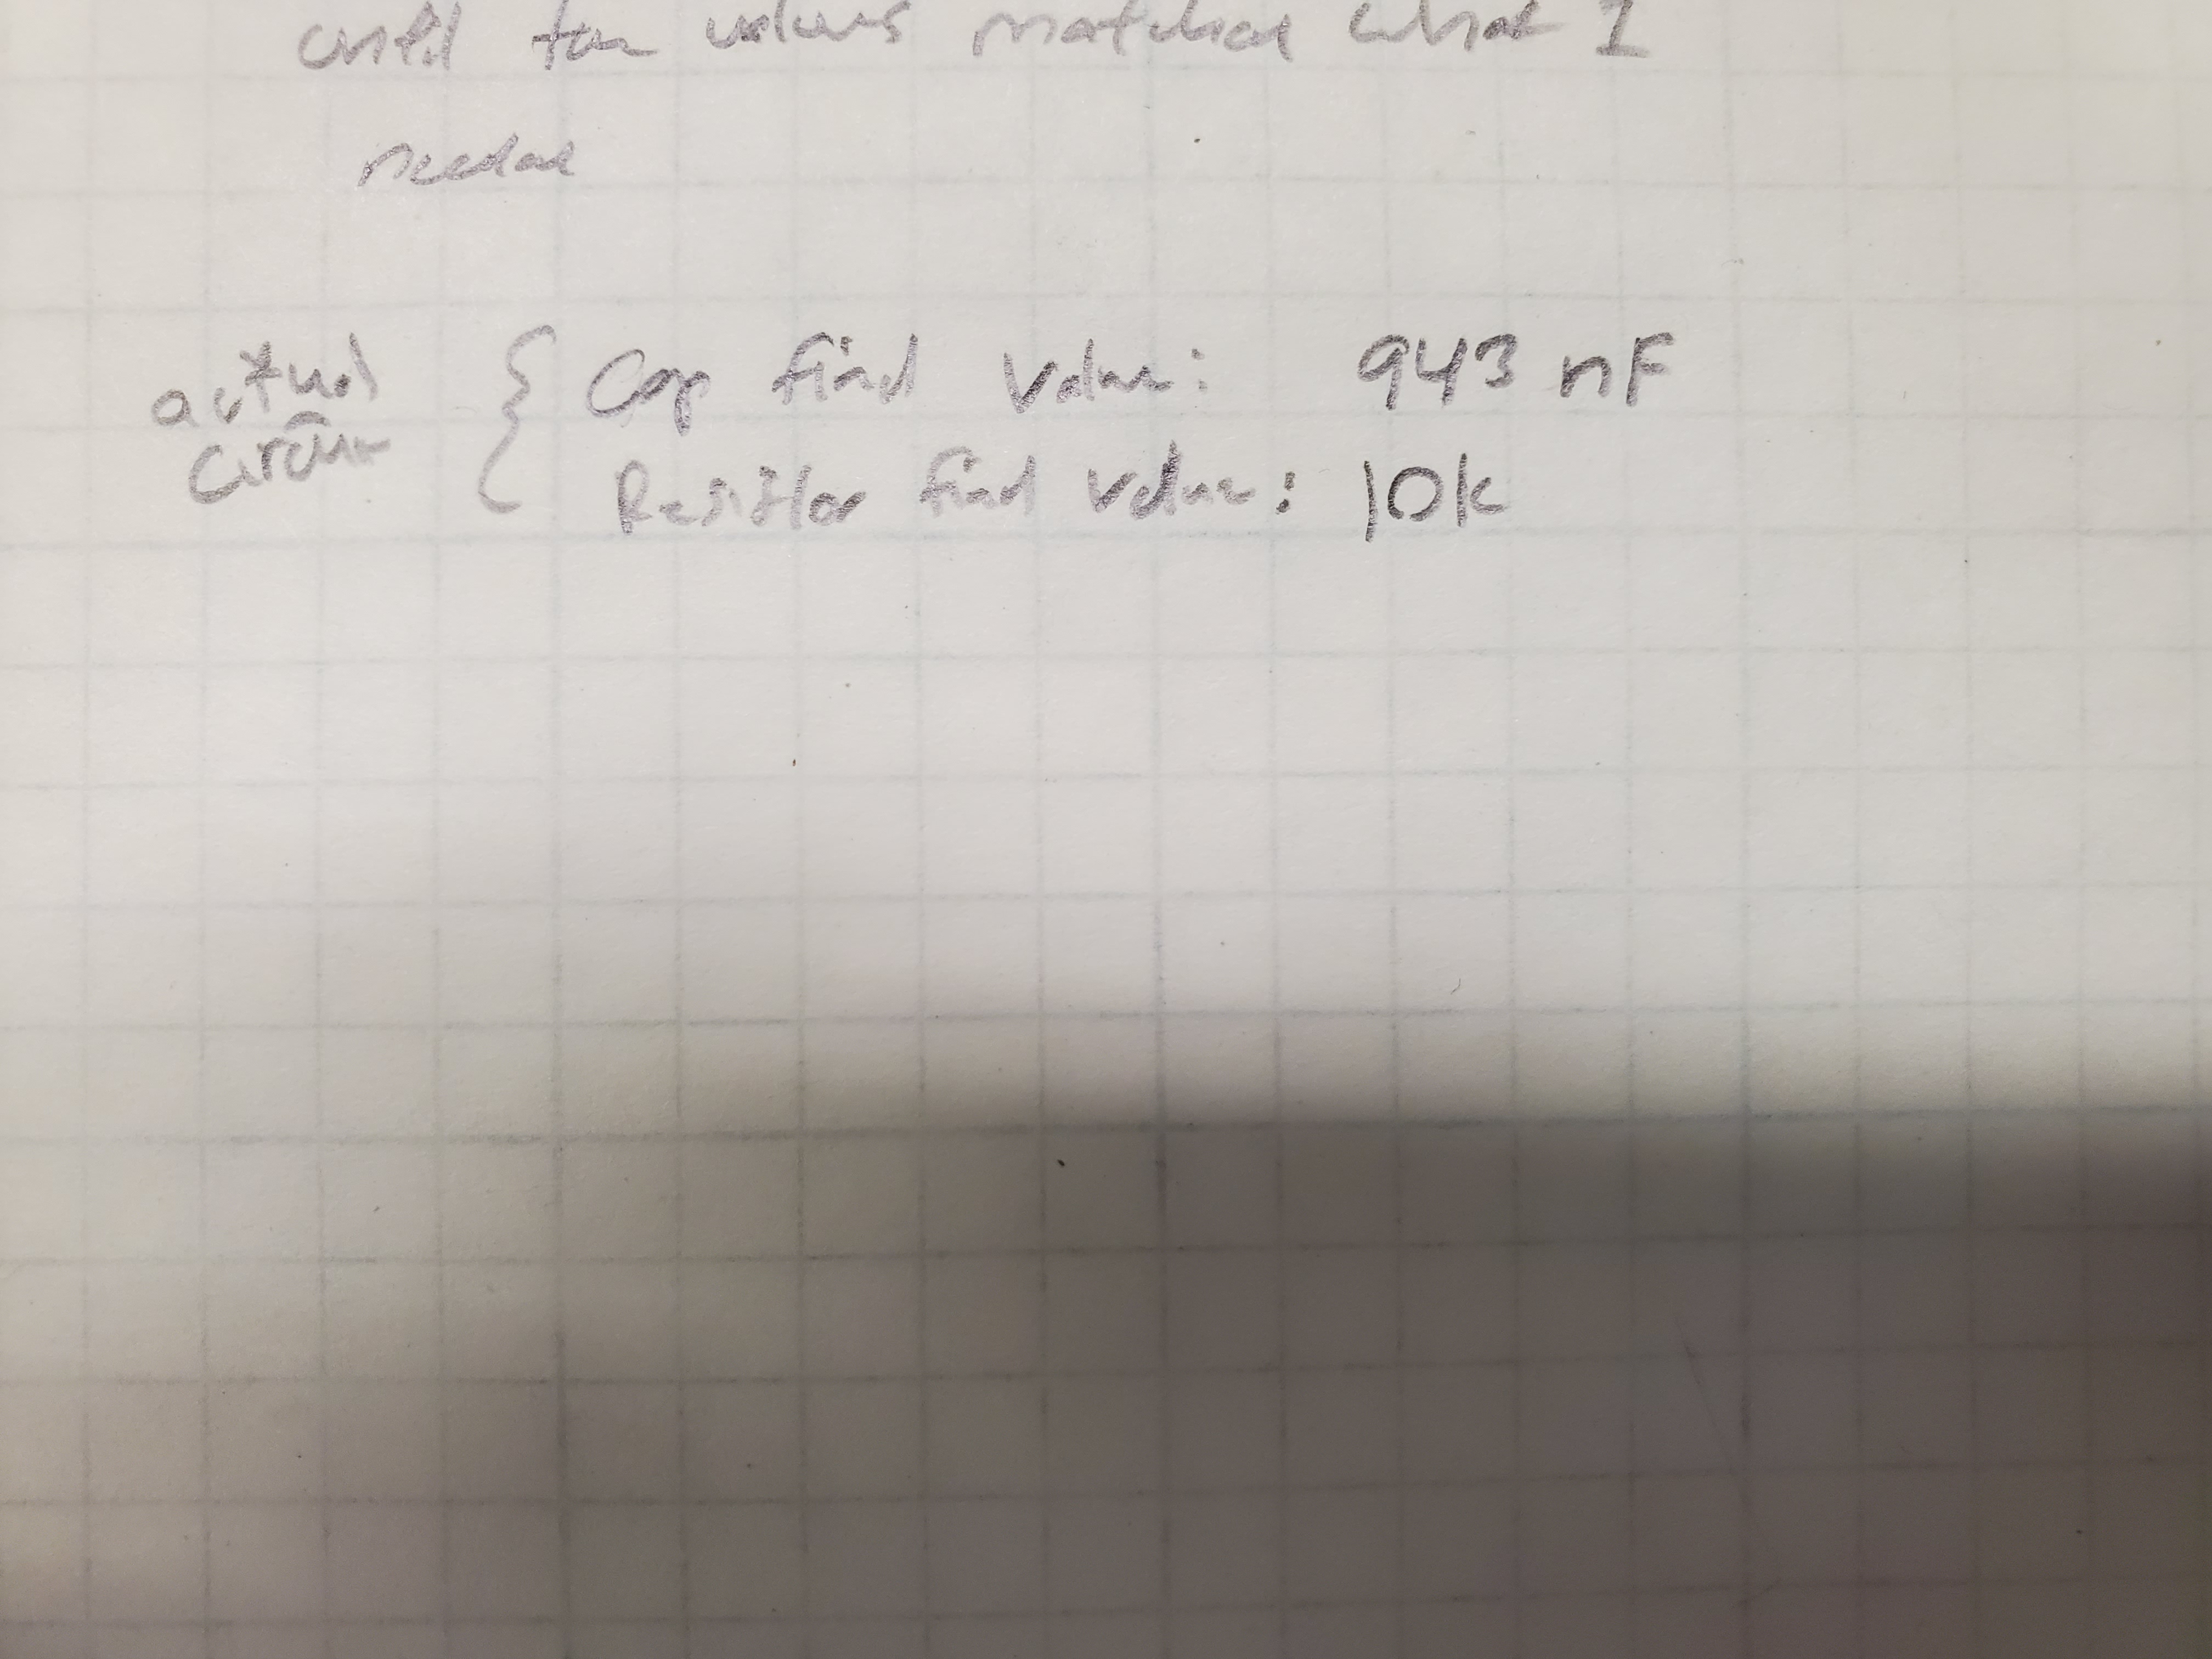 until the values matched what I
needed
actual circuit { Cap final value: 943 nF
Resistor final value: 10k